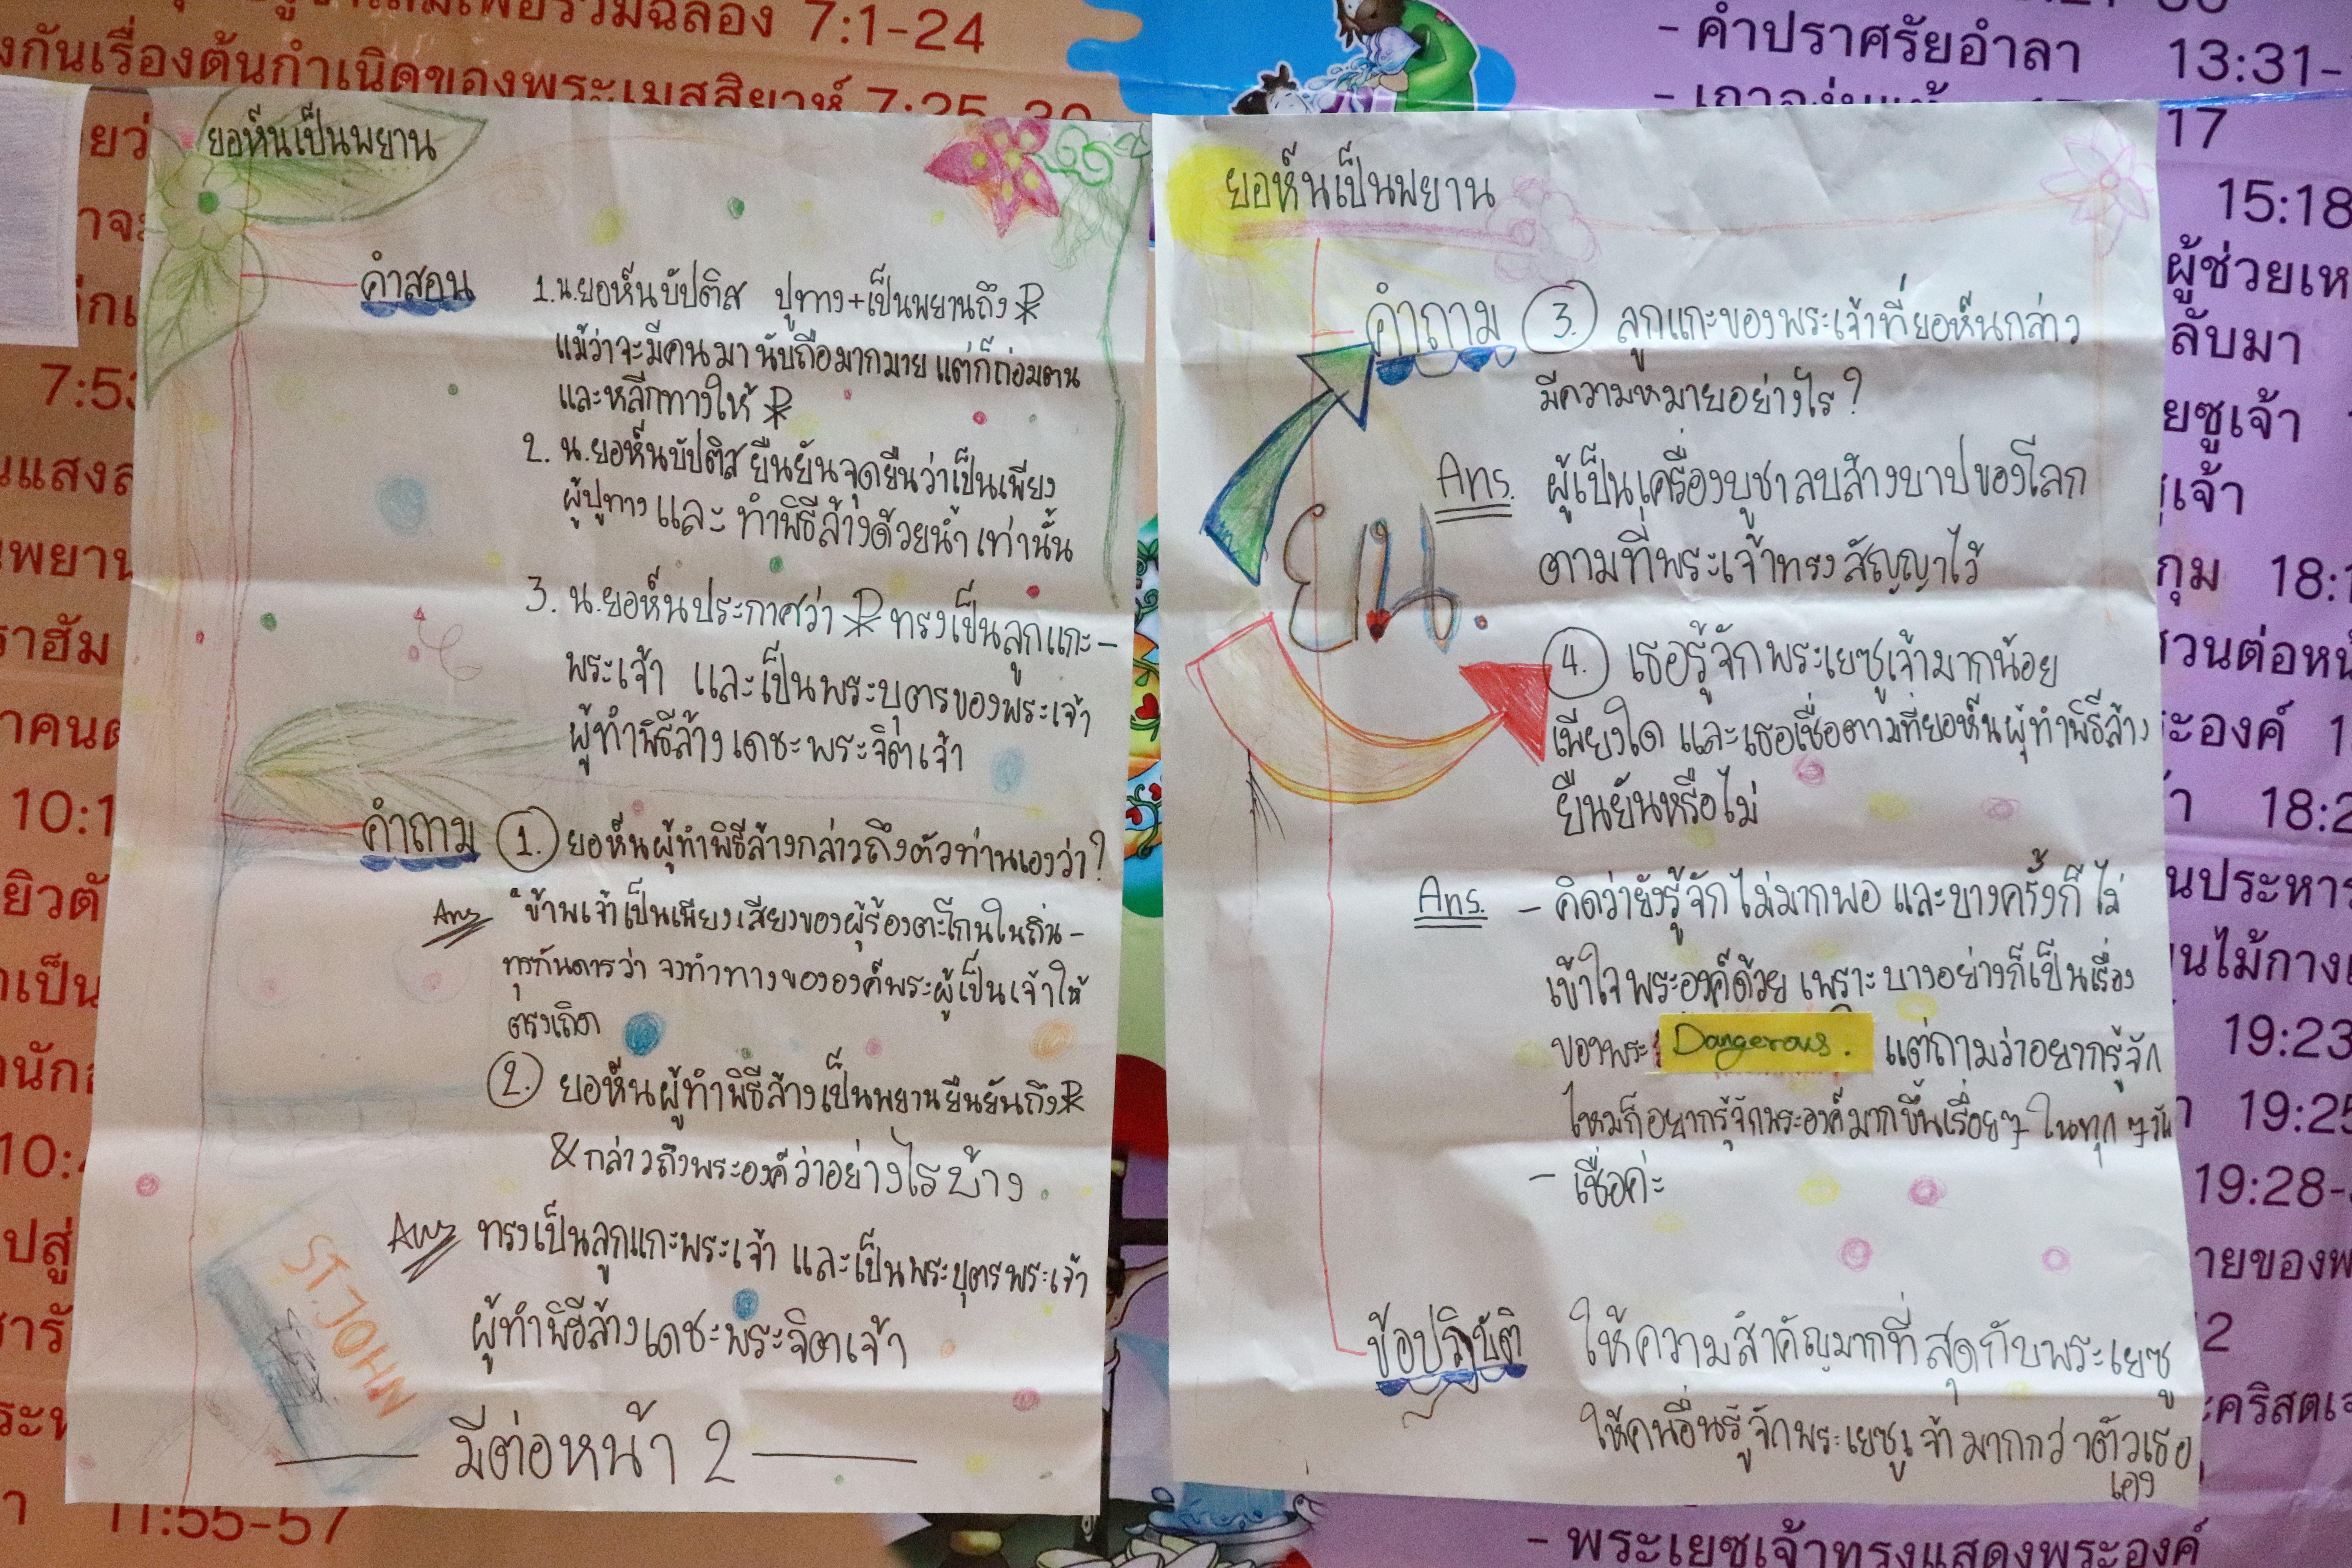 7:1-24
งกันเรื่องต้นกำเนิดของพระเมสสิยาห์ 7:25-30
7:53
10:1
11:55-57
ยอห์นเป็นพยาน
คำสอน
1. น.ยอห์นบัปติส ปูทาง+เป็นพยานถึง
แม้ว่าจะมีคนมานับถือมากมาย แต่ก็ถ่อมตน
และหลีกทางให้
2. น.ยอห์นบัปติสยืนยันจุดยืนว่าเป็นเพียง
ผู้ปูทาง และ ทำพิธีล้างด้วยน้ำ เท่านั้น
3. น.ยอห์นประกาศว่า ทรงเป็นลูกแกะ-
พระเจ้า และเป็นพระบุตรของพระเจ้า
ผู้ทำพิธีล้าง เดชะพระจิตเจ้า
คำถาม 1. ยอห์นผู้ทำพิธีล้างกล่าวถึงตัวท่านเองว่า?
Ans "ข้าพเจ้าเป็นเพียงเสียงของผู้ร้องตะโกนในถิ่น-
ทุรกันดารว่า จงทำทางขององค์พระผู้เป็นเจ้าให้
ตรงเถิด
2. ยอห์นผู้ทำพิธีล้างเป็นพยานยืนยันถึง
& กล่าวถึงพระองค์ว่าอย่างไรบ้าง
Ans ทรงเป็นลูกแกะพระเจ้า และเป็นพระบุตรพระเจ้า
ผู้ทำพิธีล้างเดชะพระจิตเจ้า
ST.JOHN
มีต่อหน้า 2
ยอห์นเป็นพยาน
คำถาม 3. ลูกแกะของพระเจ้าที่ยอห์นกล่าว
มีความหมายอย่างไร?
Ans. ผู้เป็นเครื่องบูชาลบล้างบาปของโลก
ตามที่พระเจ้าทรงสัญญาไว้
ยน.
4. เธอรู้จักพระเยซูเจ้ามากน้อย
เพียงใด และเธอเชื่อตามที่ยอห์นผู้ทำพิธีล้าง
ยืนยันหรือไม่
Ans. - คิดว่ายังรู้จักไม่มากพอ และบางครั้งก็ไม่
เข้าใจพระองค์ด้วย เพราะบางอย่างก็เป็นเรื่อง
ของพระ Dangerous. แต่ถามว่าอยากรู้จัก
ไหมก็อยากรู้จักพระองค์มากขึ้นเรื่อยๆ ในทุกๆวัน
- เชื่อค่ะ
ข้อปฏิบัติ ให้ความสำคัญมากที่สุดกับพระเยซู
ให้คนอื่นรู้จักพระเยซูเจ้ามากกว่าตัวเธอ
เอง
- คำปราศรัยอำลา 13:31-
17
15:18
ผู้ช่วยเห
ลับมา
ยซูเจ้า
18:1
19:23
19:25
19:28-
- พระเยซูเจ้าทรงแสดงพระองค์